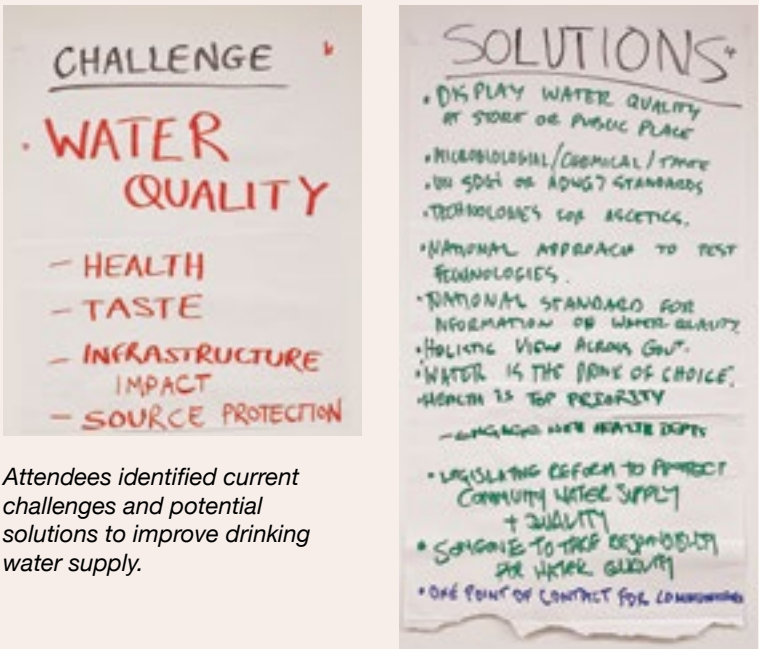 CHALLENGE
• WATER
QUALITY
– HEALTH
– TASTE
– INFRASTRUCTURE
IMPACT
– SOURCE PROTECTION
Attendees identified current
challenges and potential
solutions to improve drinking
water supply.
SOLUTIONS
• DISPLAY WATER QUALITY
AT STORE OR PUBLIC PLACE
• MICROBIOLOGIAL/CHEMICAL/TASTE
• UN SDG6 OR ADWG? STANDARDS
• TECHNOLOGIES FOR ASCETICS.
• NATIONAL APPROACH TO TEST
TECHNOLOGIES.
• NATIONAL STANDARD FOR
INFORMATION ON WATER QUALITY
• HOLISTIC VIEW ACROSS GOVT.
• WATER IS THE DRINK OF CHOICE.
• HEALTH IS TOP PRIORITY
– ENGAGE HEALTH DEPTS
• LEGISLATIVE REFORM TO PROTECT
COMMUNITY WATER SUPPLY
+ QUALITY
• SOMEONE TO TAKE RESPONSIBILITY
FOR WATER QUALITY
• ONE POINT OF CONTACT FOR COMMUNITIES